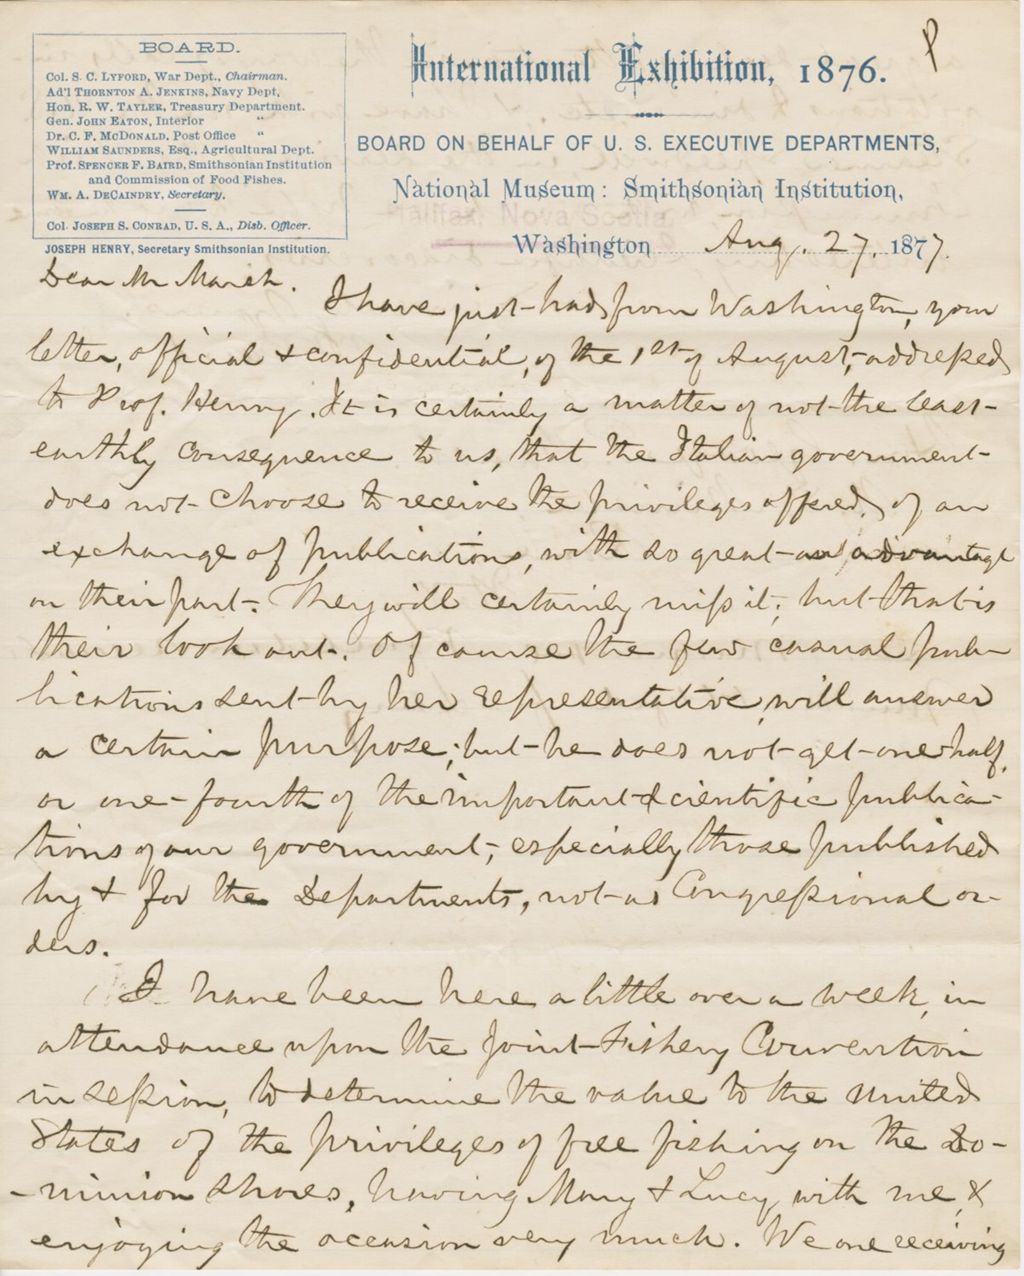 BOARD.
Col. S. C. LYFORD, War Dept., Chairman.
Ad'l THORNTON A. JENKINS, Navy Dept,
Hon. R. W. TAYLER, Treasury Department.
Gen. JOHN EATON, Interior "
Dr. C. F. McDONALD, Post Office "
WILLIAM SAUNDERS, Esq., Agricultural Dept.
Prof. SPENCER F. BAIRD, Smithsonian Institution
and Commission of Food Fishes.
WM. A. DECAINDRY, Secretary.
Col. JOSEPH S. CONRAD, U. S. A., Disb. Officer.
JOSEPH HENRY, Secretary Smithsonian Institution.
P
International Exhibition, 1876.
BOARD ON BEHALF OF U. S. EXECUTIVE DEPARTMENTS,
National Museum: Smithsonian Institution,
Halifax, Nova Scotia
Washington Aug. 27, 1877.
Dear Mr Marsh.
I have just had, from Washington, your
letter, official & confidential, of the 1st of August, addressed
to Prof. Henry. It is certainly a matter of not the least
earthly consequence to us, that the Italian government
does not choose to receive the privileges offered, of an
exchange of publications, with so great an advantage
on their part. They will certainly miss it; but that is
their look out. Of course the few casual pub-
lications sent by her representative, will answer
a certain purpose; but he does not get one half,
or one-fourth of the important scientific publica-
tions of our government, especially those published
by & for the Departments, not as Congressional or-
ders.
I have been here a little over a week, in
attendance upon the Joint Fishery Convention
in session, to determine the value to the United
States of the privileges of free fishing on the Do-
-minion shores, having Mary & Lucy with me, &
enjoying the occasion very much. We are receiving